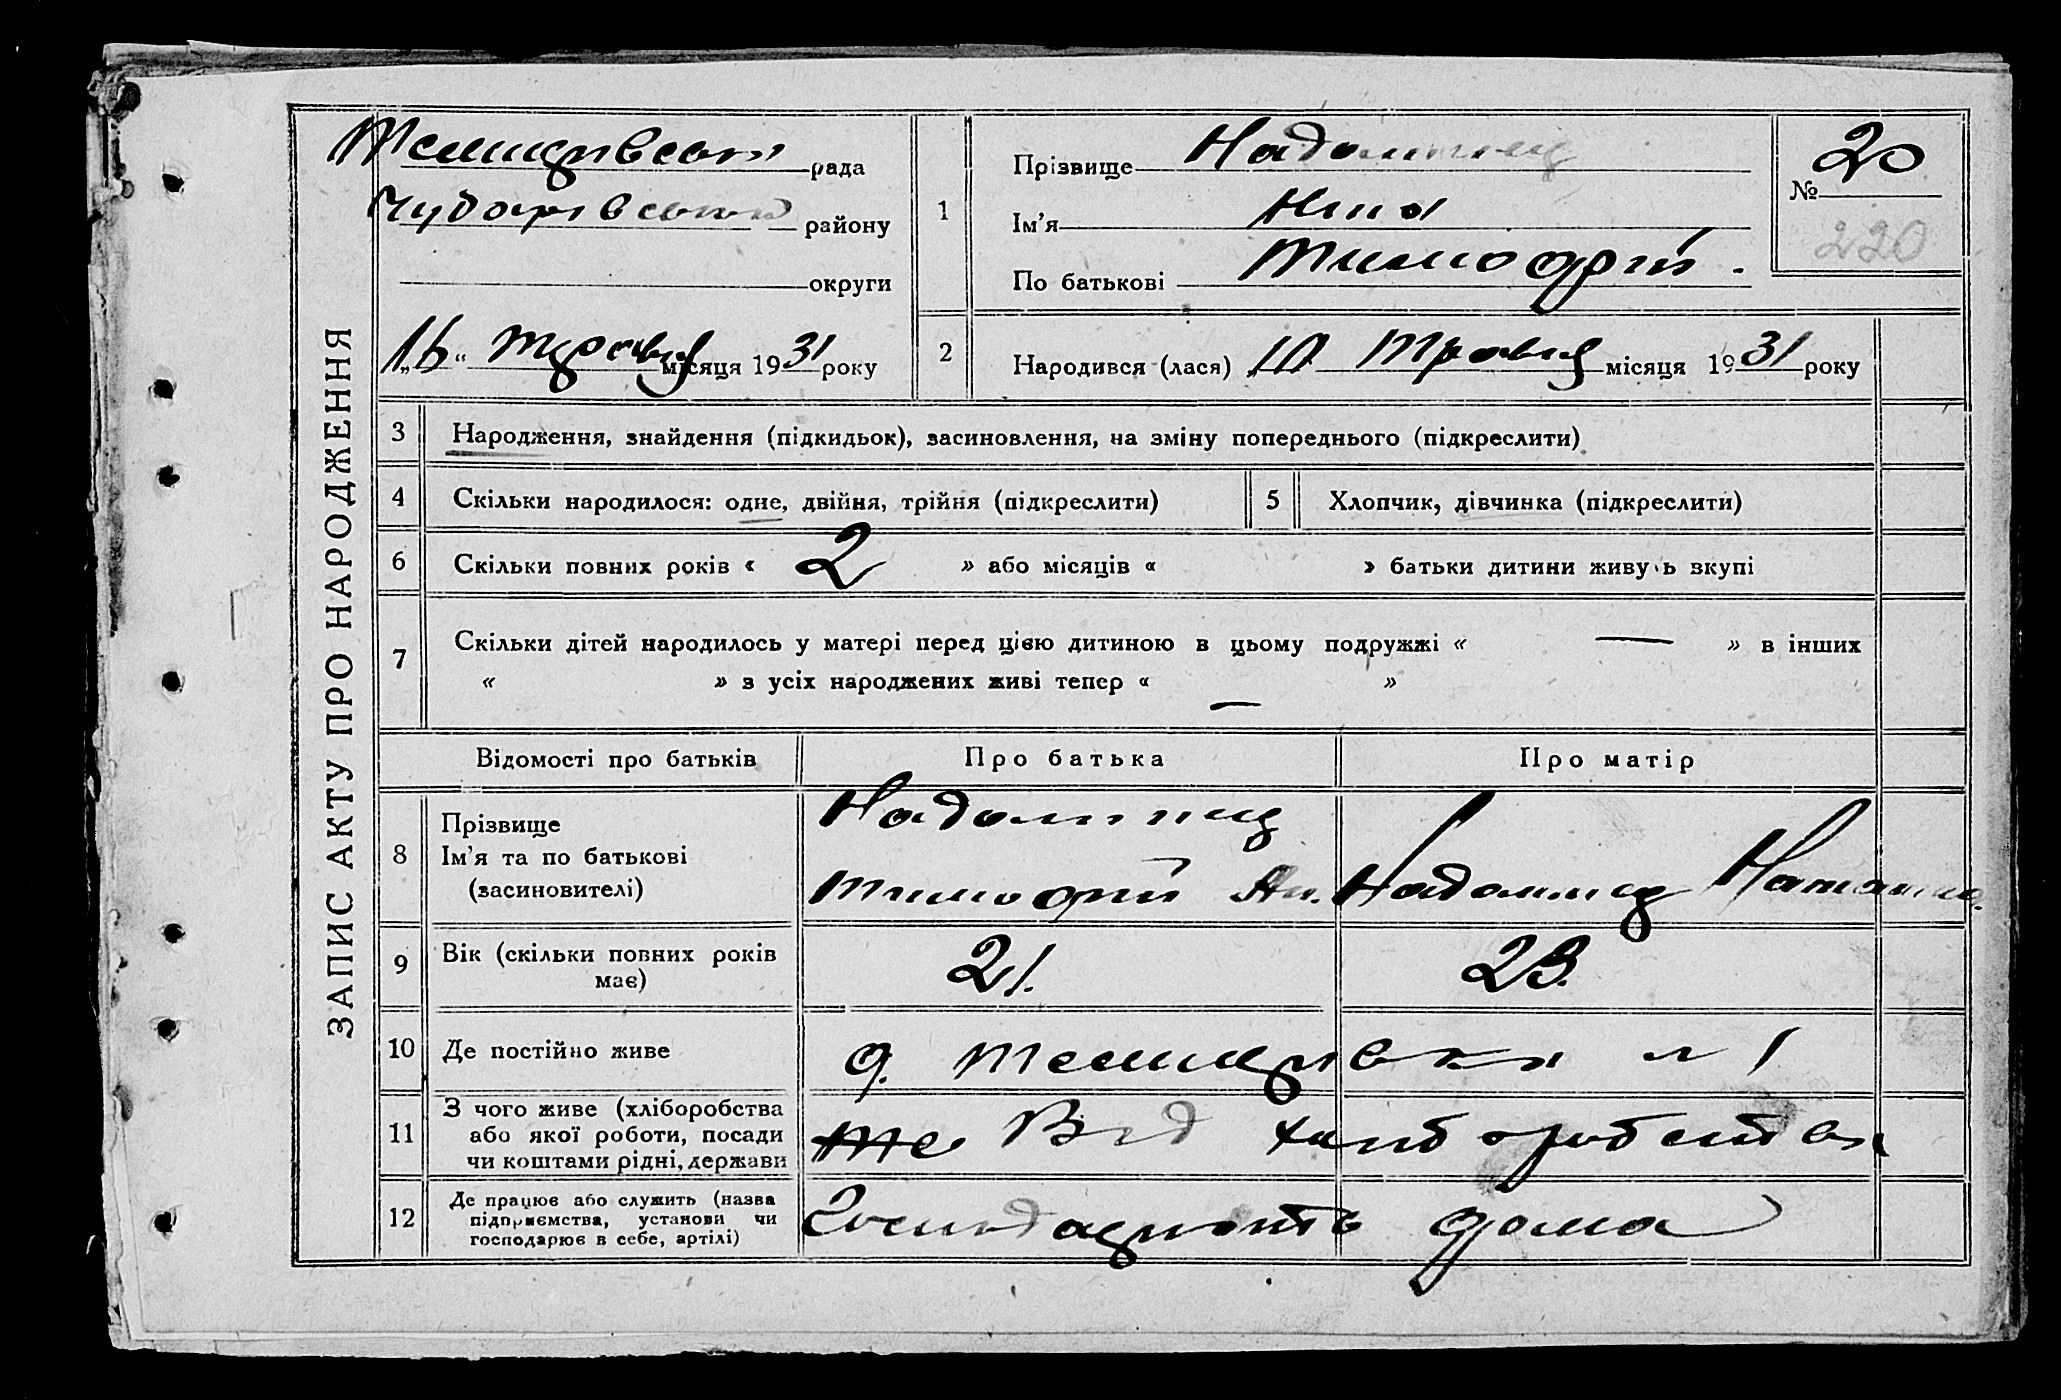 рада
Чубарівський району
округи
"16" травня місяця 1931 року
1 Прізвище
Ім'я Ніна
По батькові Тимофій.
№ 20
220
2 Народився (лася) 10 травня місяця 1931 року
ЗАПИС АКТУ ПРО НАРОДЖЕННЯ
3 Народження, знайдення (підкидьок), засиновлення, на зміну попереднього (підкреслити)
4 Скільки народилося: одне, двійня, трійня (підкреслити) 5 Хлопчик, дівчинка (підкреслити)
6 Скільки повних років « 2 » або місяців « » батьки дитини живуть вкупі
7 Скільки дітей народилось у матері перед цією дитиною в цьому подружжі « — » в інших
« » з усіх народжених живі тепер « — »
Відомості про батьків Про батька Про матір
8 Прізвище
Ім'я та по батькові
(засиновителі)
Тимофій
9 Вік (скільки повних років
має)
21. 23.
10 Де постійно живе
11 З чого живе (хліборобства
або якої роботи, посади
чи коштами рідні, держави
Від хліборобства
12 Де працює або служить (назва
підприємства, установи чи
господарює в себе, артілі)
дома